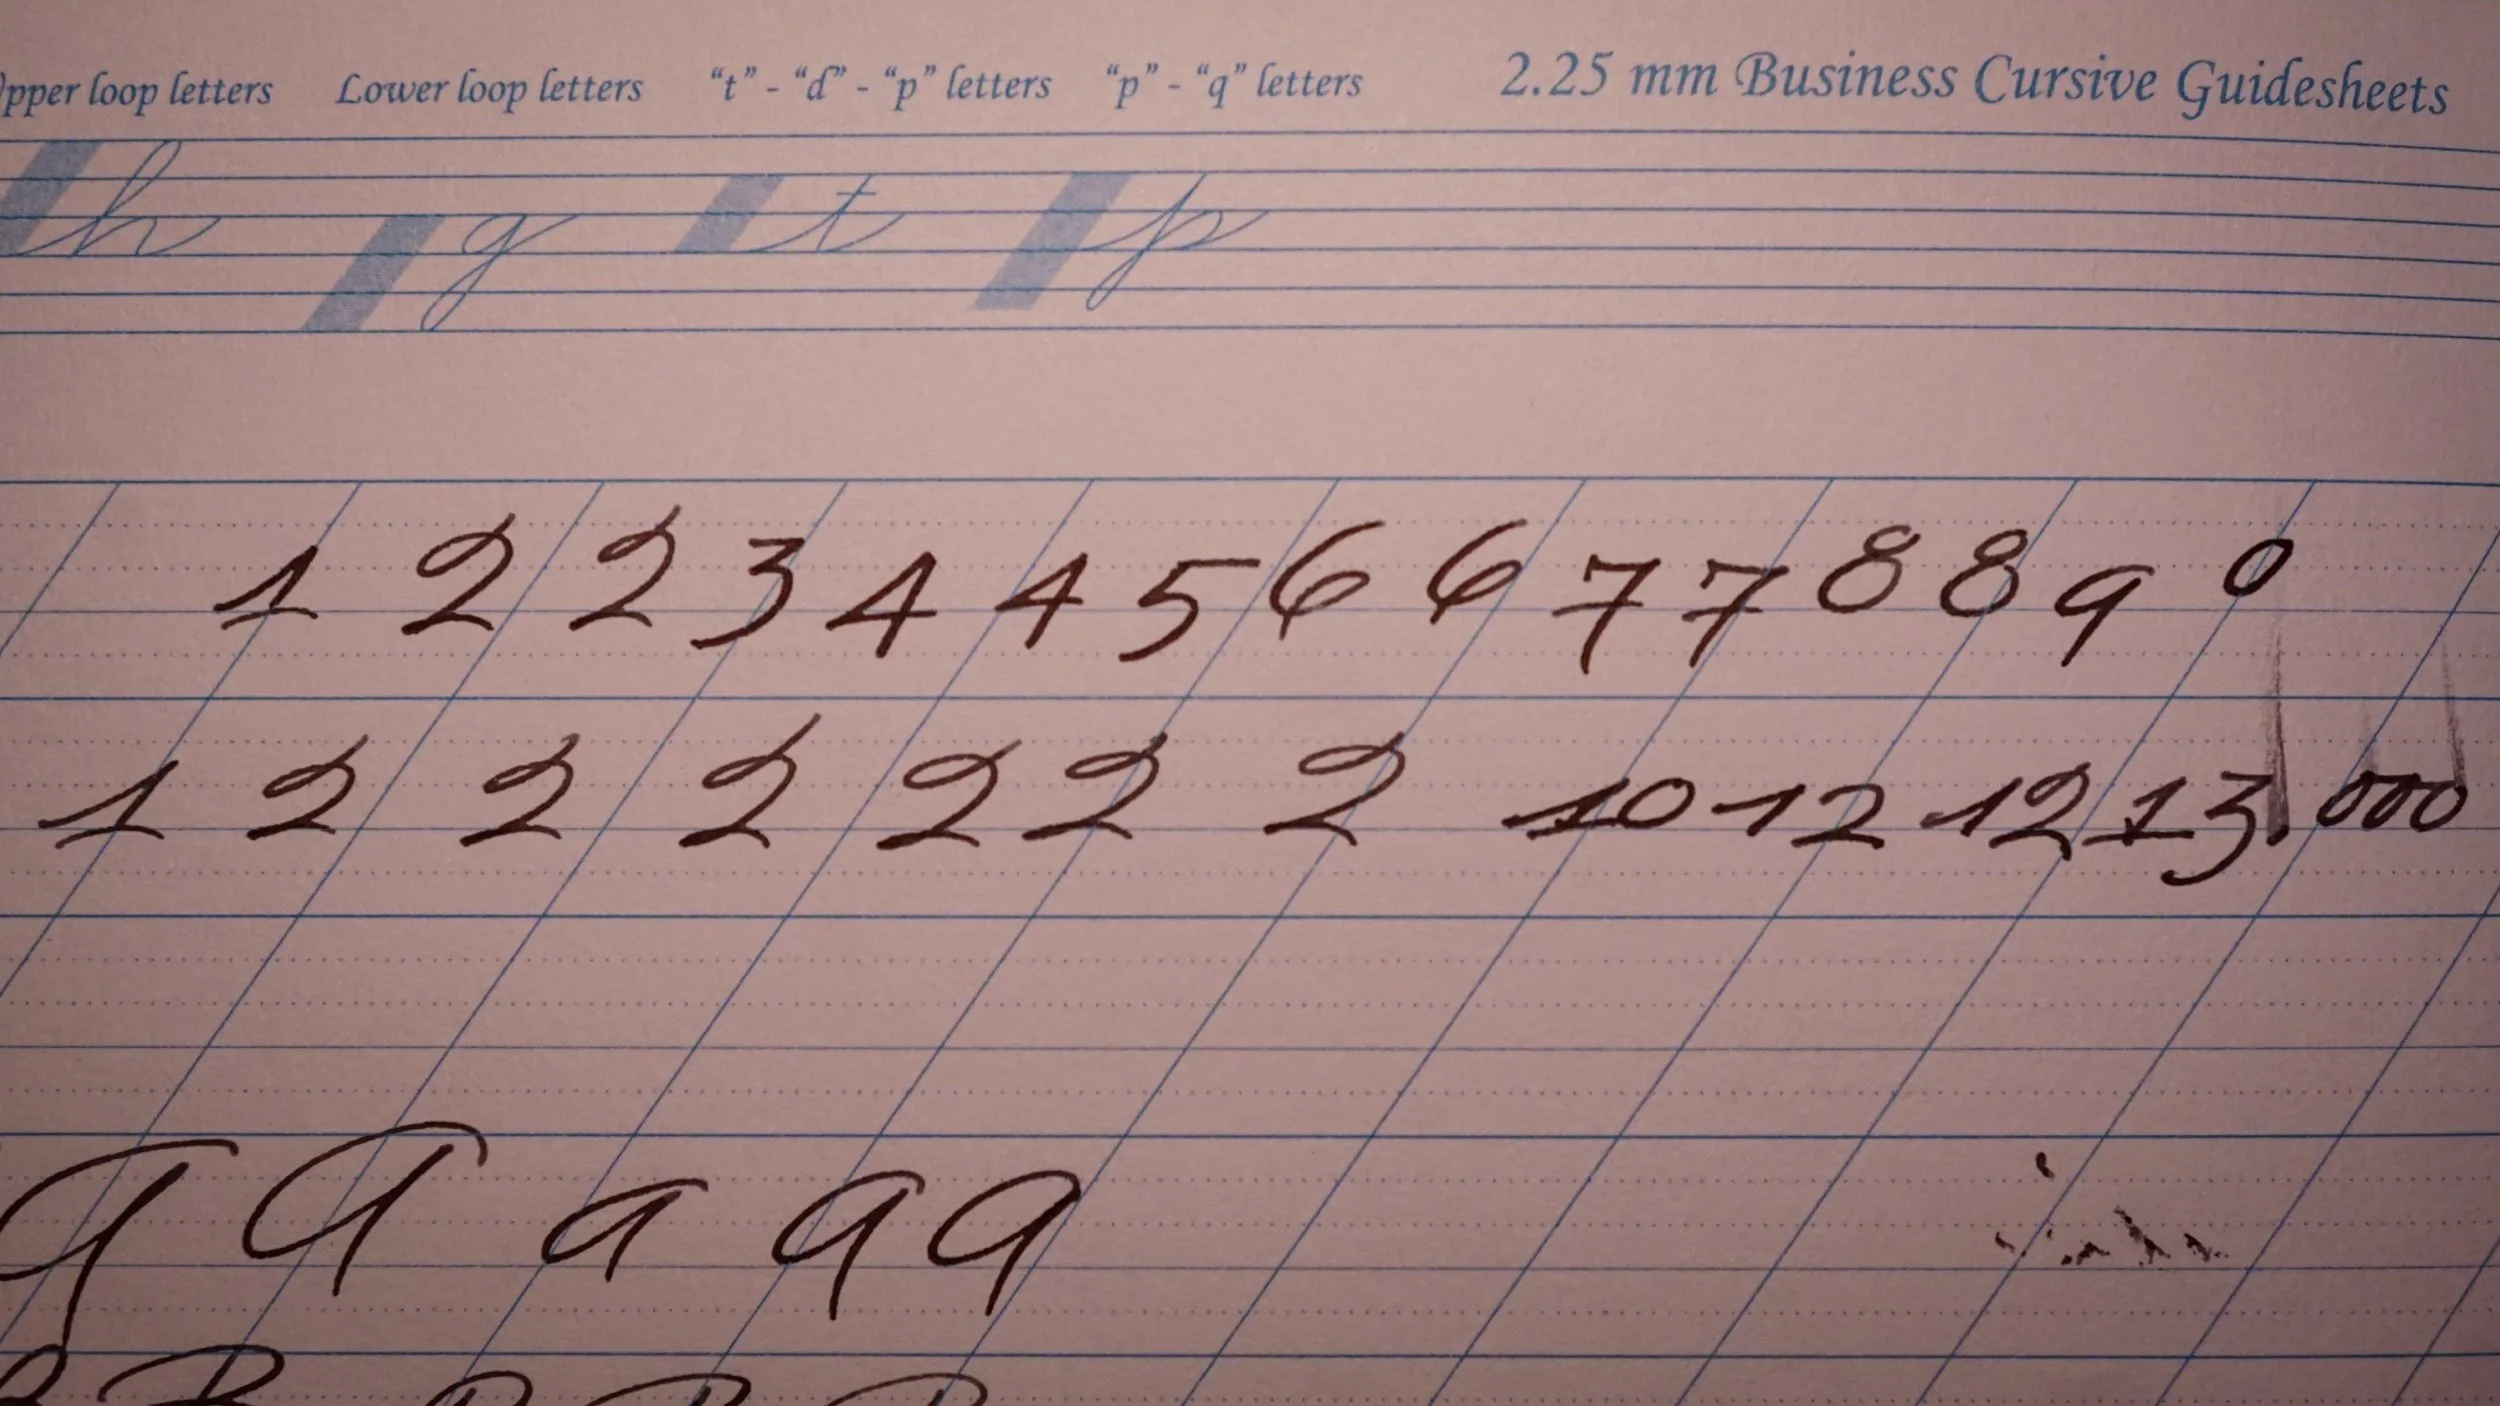 pper loop letters Lower loop letters “t” - “d” - “p” letters “p” - “q” letters 2.25 mm Business Cursive Guidesheets
h g t p
1 2 2 3 4 4 5 6 6 7 7 8 8 9 0
1 2 2 2 2 2 2 10 12 12 13.000
9 9 9 9 9